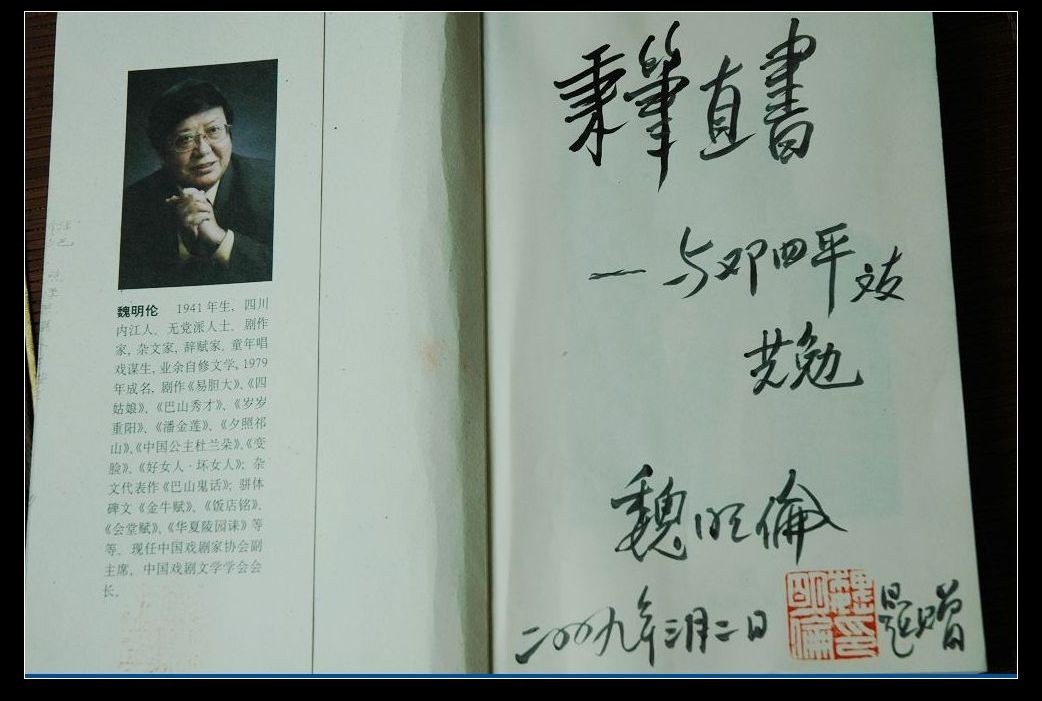 魏明伦 1941年生，四川
内江人。无党派人士。剧作
家，杂文家，辞赋家。童年唱
戏谋生，业余自修文学，1979
年成名。剧作《易胆大》、《四
姑娘》、《巴山秀才》、《岁岁
重阳》、《潘金莲》、《夕照祁
山》、《中国公主杜兰朵》、《变
脸》、《好女人·坏女人》；杂
文代表作《巴山鬼话》；骈体
碑文《金牛赋》、《饭店铭》、
《会堂赋》、《华夏陵园诔》等
等。现任中国戏剧家协会副
主席，中国戏剧文学学会会
长。
秉筆直書
— 与邓四平 文友
共勉
魏明倫
二00九年三月二日 题赠
魏明倫印